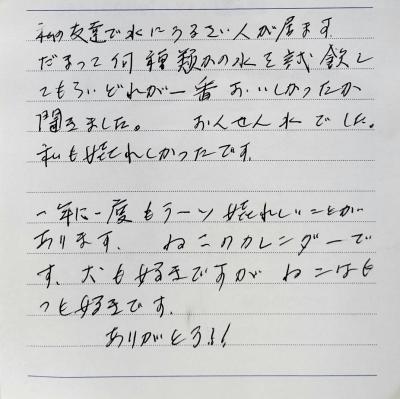 私の友達で水にうるさい人が居ます.
だまって何種類かの水を試飲し
てもらいどれが一番おいしかったか
聞きました。 おんせん水でした.
私も嬉れしかったです.
一年に一度もう一ツ嬉れしいことが
あります. ねこのカレンダーで
す. 犬も好きですが ねこはも
っも好きです.
ありがとう!!